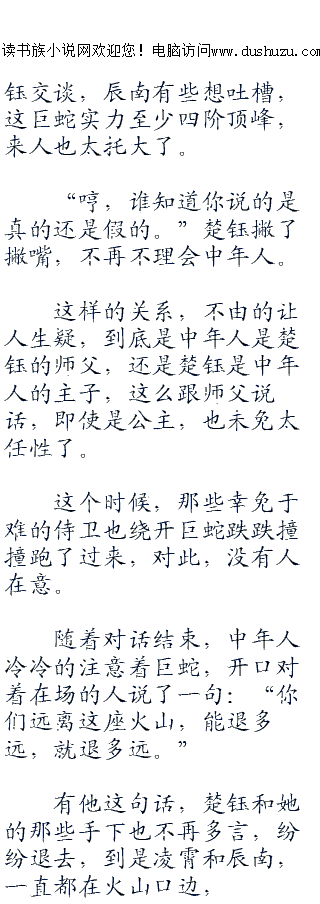 读书族小说网欢迎您！电脑访问www.dushuzu.com
钰交谈，辰南有些想吐槽，
这巨蛇实力至少四阶顶峰，
来人也太托大了。
“哼，谁知道你说的是
真的还是假的。”楚钰撇了
撇嘴，不再不理会中年人。
这样的关系，不由的让
人生疑，到底是中年人是楚
钰的师父，还是楚钰是中年
人的主子，这么跟师父说
话，即使是公主，也未免太
任性了。
这个时候，那些幸免于
难的侍卫也绕开巨蛇跌跌撞
撞跑了过来，对此，没有人
在意。
随着对话结束，中年人
冷冷的注意着巨蛇，开口对
着在场的人说了一句：“你
们远离这座火山，能退多
远，就退多远。”
有他这句话，楚钰和她
的那些手下也不再多言，纷
纷退去，到是凌霄和辰南，
一直都在火山口边，